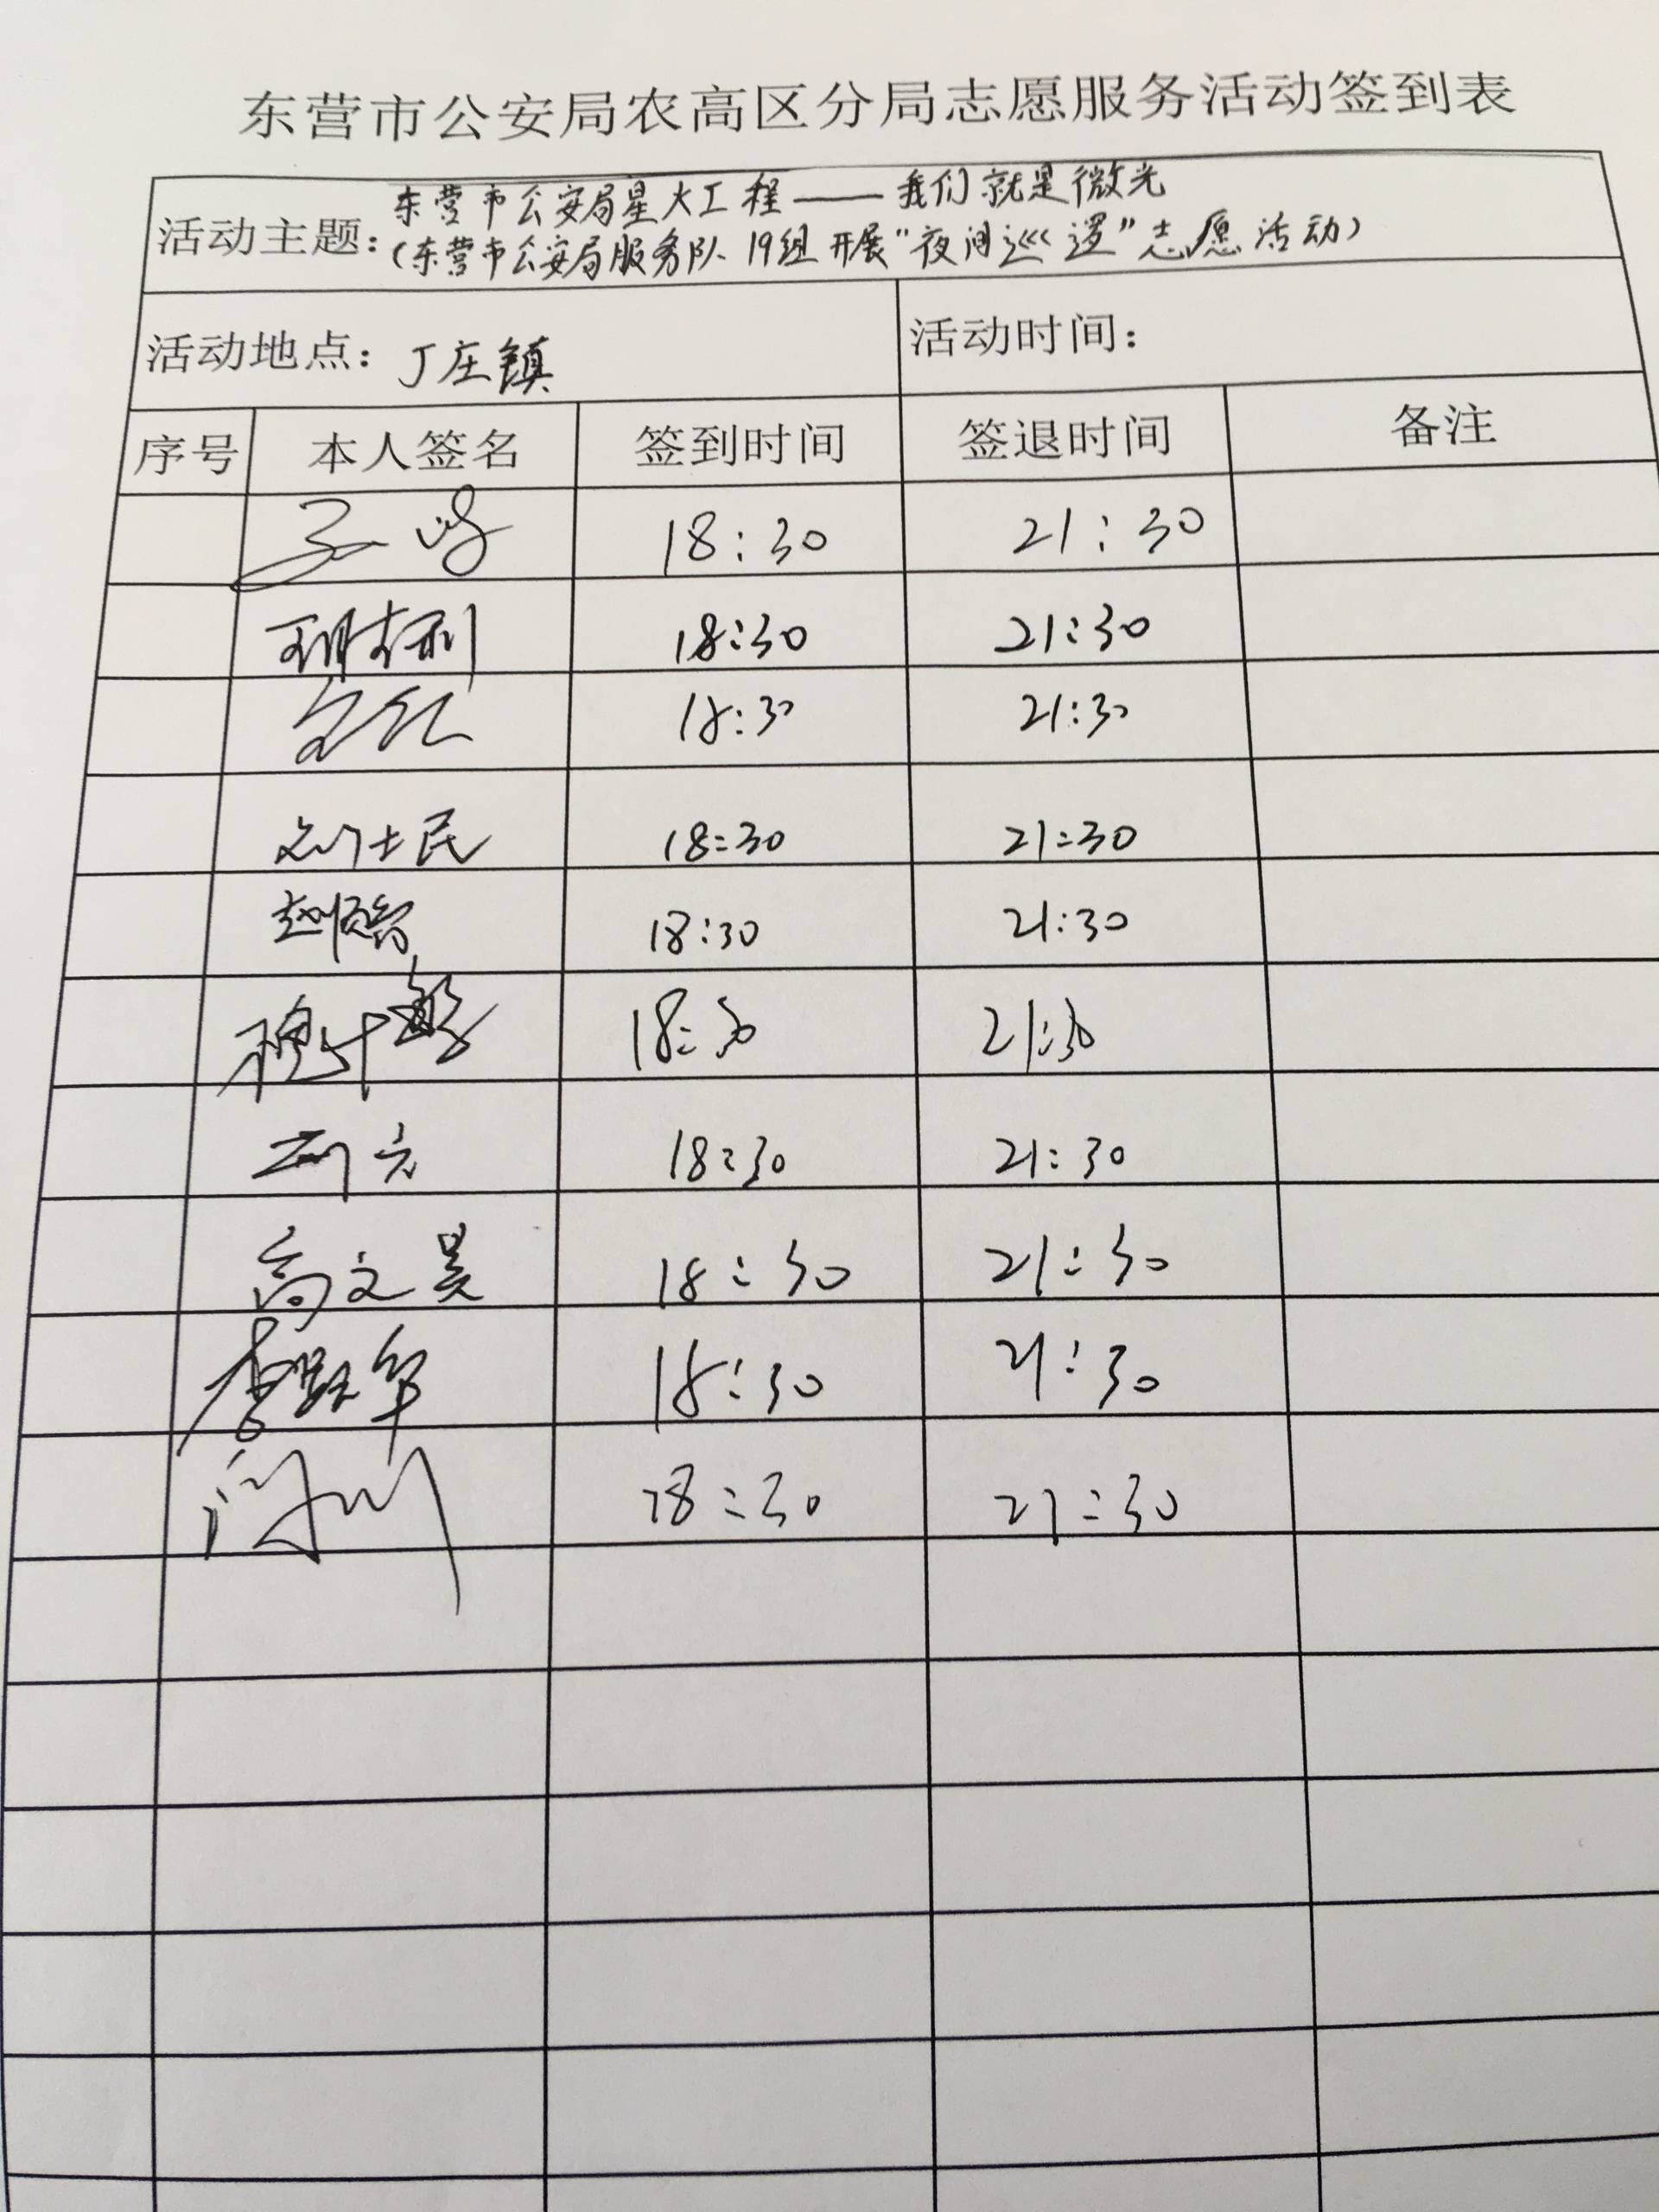 东营市公安局农高区分局志愿服务活动签到表
活动主题：东营市公安局星火工程——我们就是微光
（东营市公安局服务队19组开展“夜间巡逻”志愿活动）
活动地点：丁庄镇 活动时间：
序号 本人签名 签到时间 签退时间 备注
18:30 21:30
18:30 21:30
18:30 21:30
刘士民 18:30 21:30
18:30 21:30
18:30 21:30
18:30 21:30
高文昊 18:30 21:30
李跃军 18:30 21:30
18:30 21:30